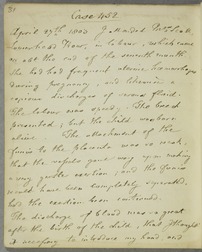 Case 452.
April 27th 1803
in labour, which came
on at the end of the seventh month.
She had had frequent uterine hæmorrhages
during pregnancy, and likewise a
copious discharge of serous fluid.
The labour was speedy. The head
presented, but the child was born
alive. The attachment of the
funis to the placenta was so weak,
that the vessels gave way upon making
a very gentle exertion; and the funis
would have been completely separated,
had the exertion been continued.
The discharge of blood was so great
after the birth of the child, that I thought
it necessary to introduce my hand and